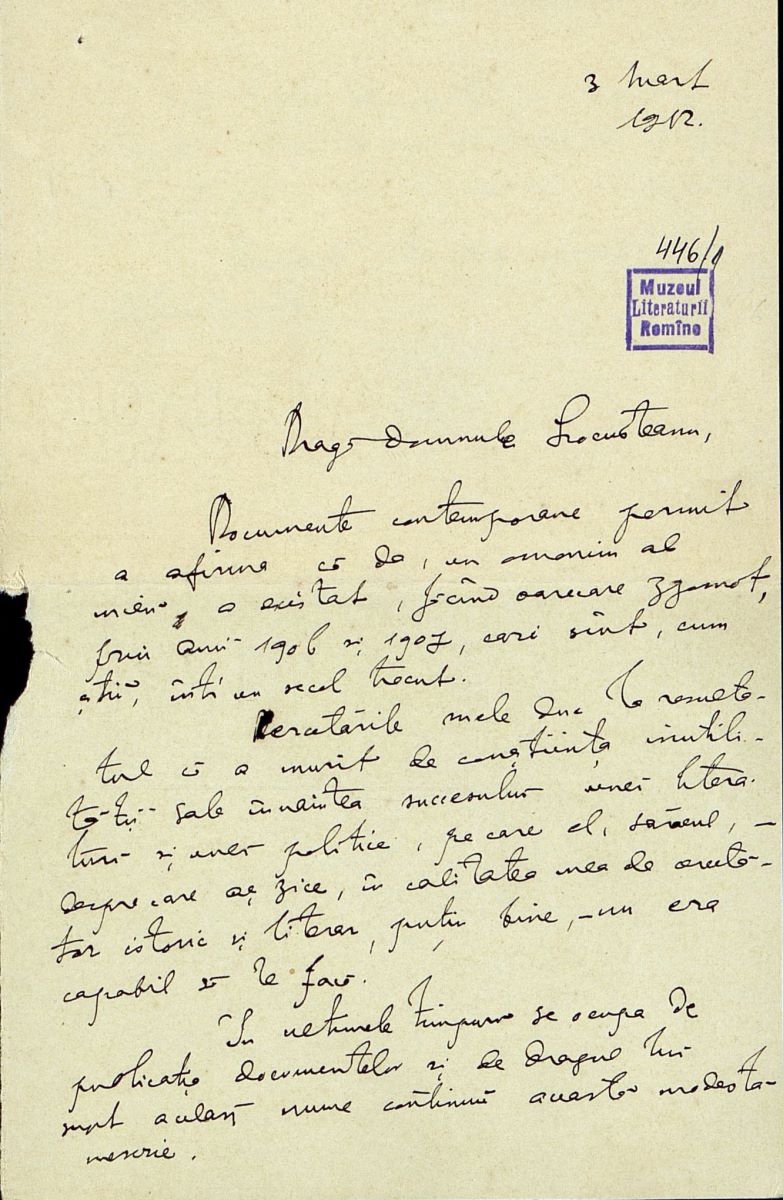 3 Mart
1912.
446/1
Muzeul
Literaturii
Romîne
Dragă domnule Locusteanu,
Documente contemporane permit
a afirma că da, un omonim al
mieu a existat, făcînd oarecare zgomot,
prin anii 1906 și 1907, cari sînt, cum
știi, întî un secol trecut.
Cercetările mele duc la resulta-
tul că a murit de conștiința inutili-
tății sale înnaintea succesului unei litera-
turi și unei politice, pe care el, săracul, –
despre care aș zice, în calitatea mea de cercetă-
tor istoric și literar, puțin bine, – nu era
capabil să le facă.
În ultimele timpuri se ocupa de
publicația documentelor și de dragul lui
supt același nume continuu această modestă
meserie.